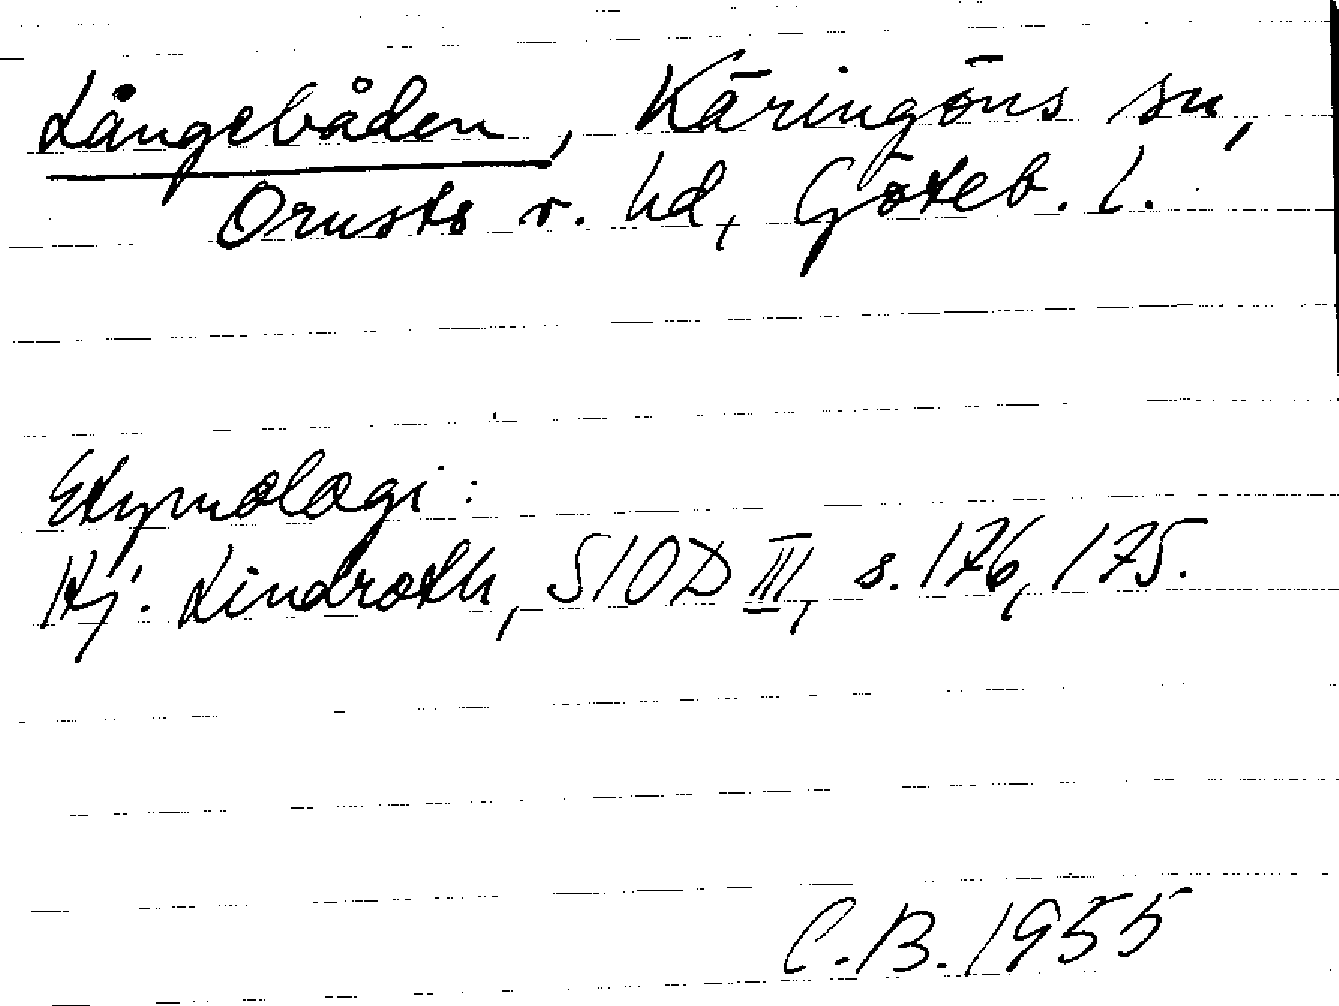 Långebåden, Käringöns sn,
Orusts v. hd, Göteb. l.
Etymologi:
Hj. Lindroth, SIOD III, s. 176, 175.
C.B. 1955